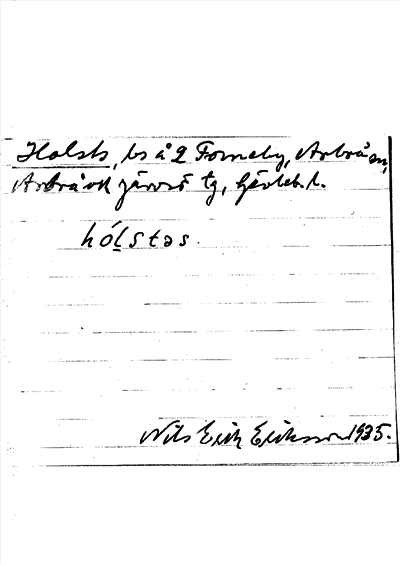 Holsts, bs å 2 Forneby, Arbrå sn,
Arbrå och Järvsö tg, Gävleb. l.
hó̱lstəs.
Nils Erik Eriksson 1935.